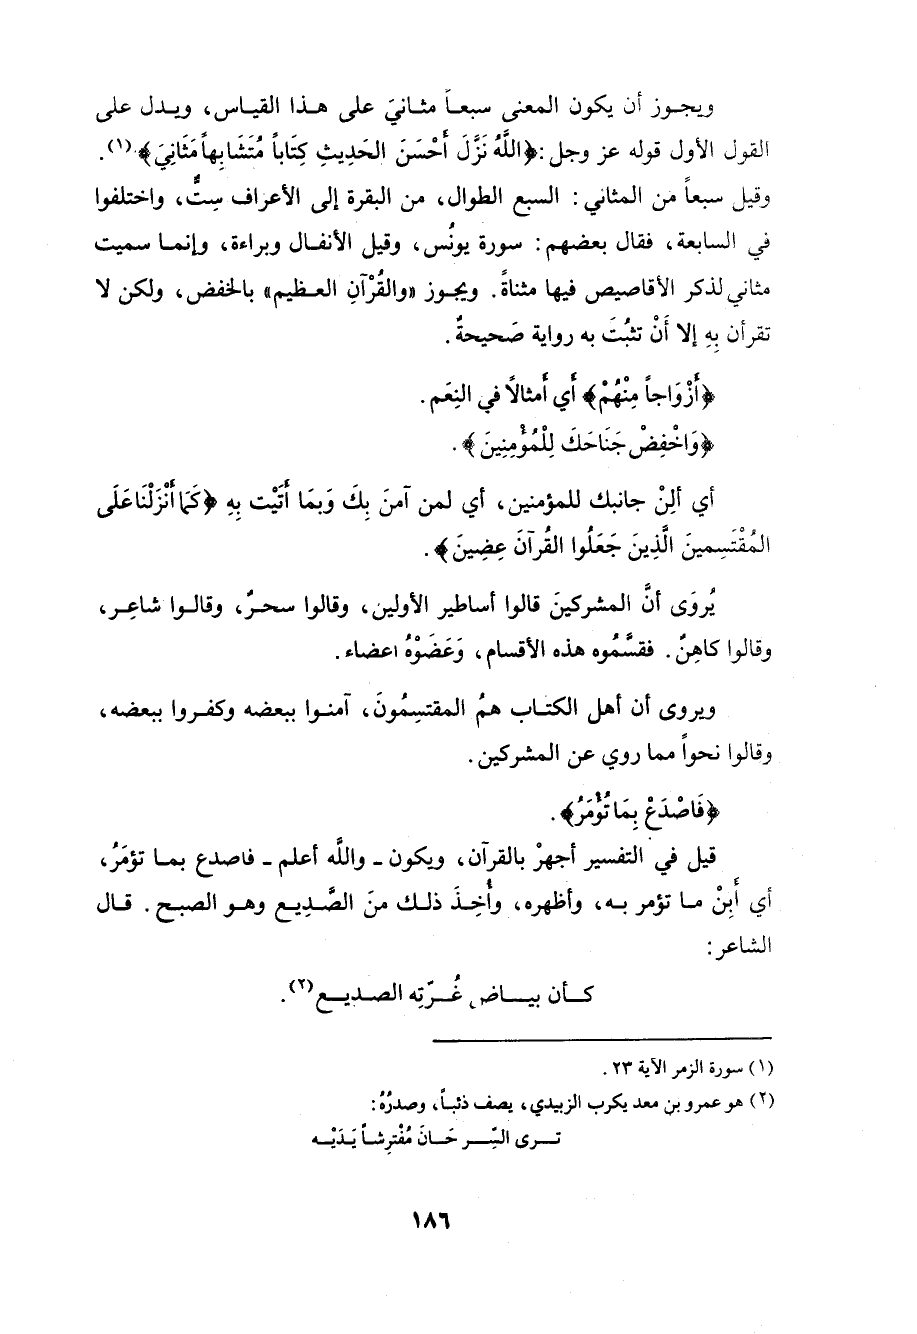 ويجوز أن يكون المعنى سبعاً مثانيَ على هذا القياس، ويدل على
القول الأول قوله عز وجل: ﴿اللَّهُ نَزَّلَ أَحْسَنَ الحَدِيثِ كِتَاباً مُتَشَابِهاً مَثَانِيَ﴾(١).
وقيل سبعاً من المثاني: السبع الطوال، من البقرة إلى الأعراف سِتٌّ، واختلفوا
في السابعة، فقال بعضهم: سورة يونُس، وقيل الأنفال وبراءة، وإنما سميت
مثاني لذكر الأقاصيص فيها مثناةً. ويجوز «والقُرْآنِ العظيم» بالخفض، ولكن لا
تقرأن بِهِ إلا أَنْ تثبُتَ به رواية صَحيحةٌ.
﴿أَزْوَاجاً مِنْهُمْ﴾ أَي أَمثالاً في النِعَم.
﴿وَاخْفِضْ جَنَاحَكَ لِلْمُؤْمِنِينَ﴾.
أي ألِنْ جانبك للمؤمنين، أي لمن آمنَ بِكَ وَبمَا أَتَيْت بِهِ ﴿كَمَا أَنْزَلْنَا عَلَى
المُقْتَسِمينَ الَّذِينَ جَعَلُوا القُرآنَ عِضِينَ﴾.
يُروَى أنَّ المشركينَ قالوا أساطير الأولين، وقالوا سحرٌ، وقالوا شاعِر،
وقالوا كاهِنٌ. فقسَّمُوه هذه الأقسام، وَعَضَوْهُ اعضاء.
ويروى أن أهل الكتاب همُ المقتسِمُونَ، آمنوا ببعضه وكفروا ببعضه،
وقالوا نحواً مما روي عن المشركين.
﴿فَاصْدَعْ بِمَا تُؤْمَرُ﴾.
قيل في التفسير أجهرْ بالقرآن، ويكون ـ والله أعلم ـ فاصدع بما تؤمَرُ،
أي أَبِنْ ما تؤمر به، وأظهره، وأُخِذَ ذلك منَ الصَّدِيع وهو الصبح. قال
الشاعر:
كأن بياض غُرّتِه الصديع(٢).
(١) سورة الزمر الآية ٢٣.
(٢) هو عمرو بن معد يكرب الزبيدي، يصف ذئباً، وصدرُهُ:
ترى السِّرحَانَ مُفْترِشاً يَدَيْه
١٨٦